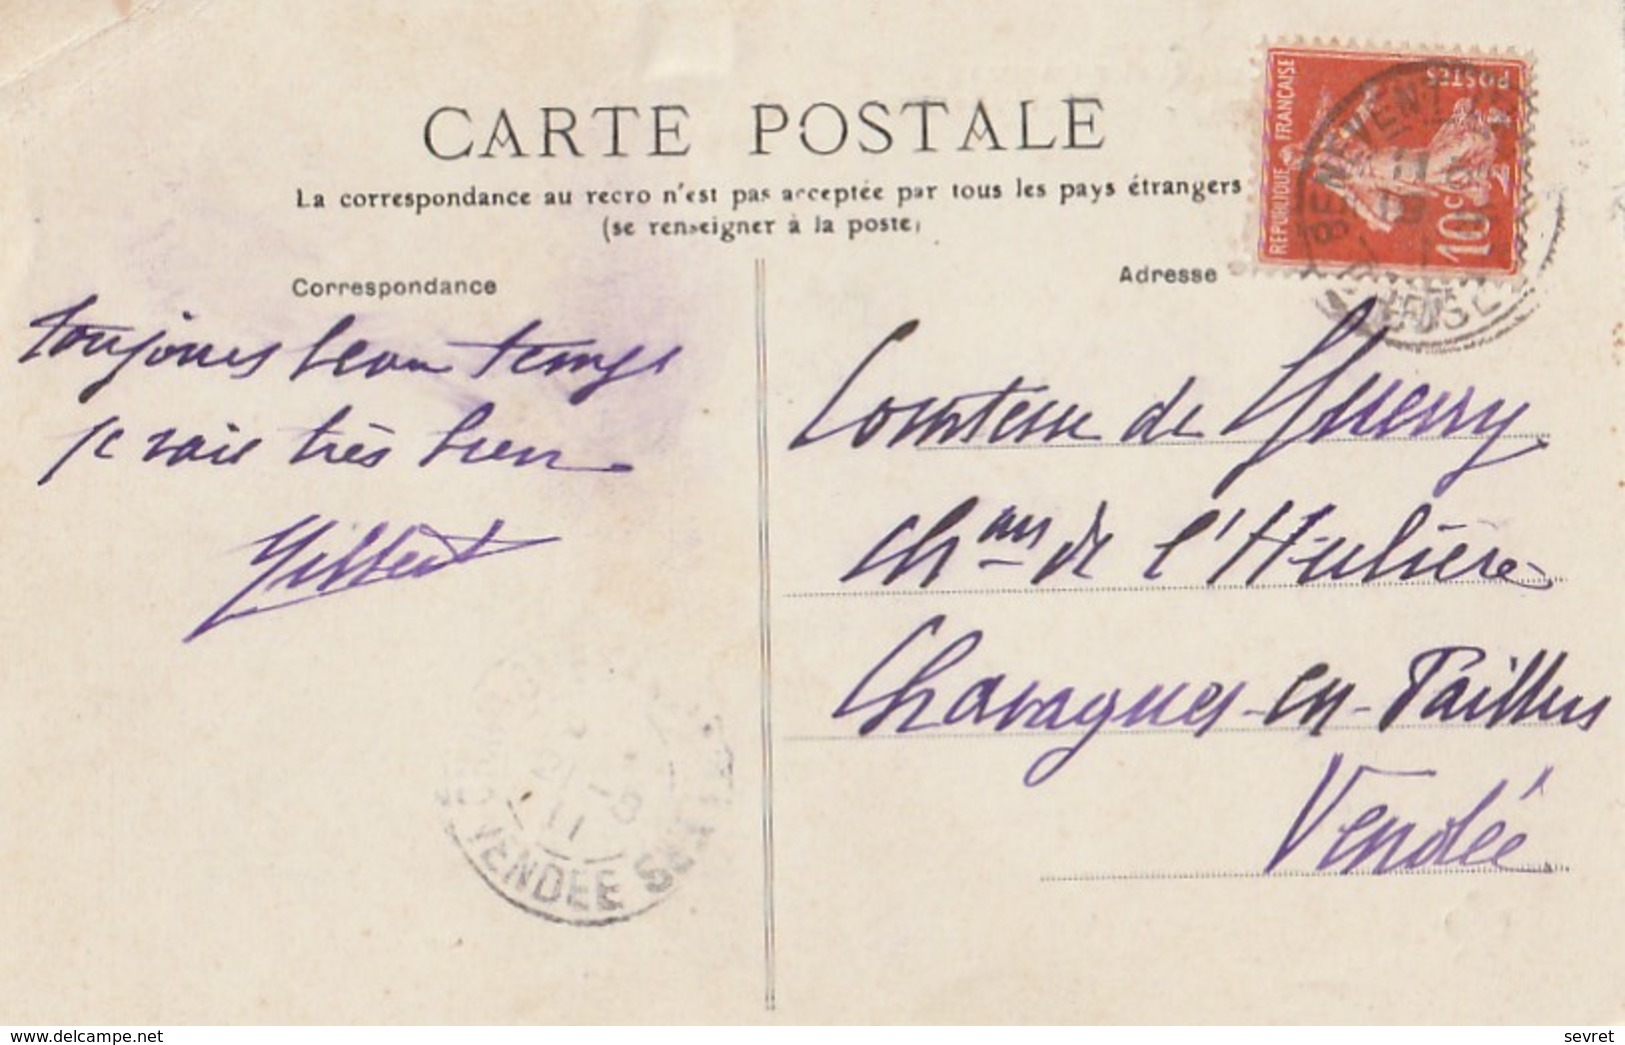 CARTE POSTALE
La correspondance au recto n'est pas acceptée par tous les pays étrangers
(se renseigner à la poste)
Correspondance
Adresse
REPUBLIQUE FRANÇAISE
POSTES
10c
BENEVENT
CREUSE
toujours beau temps
je vais très bien
Gilbert
Comtesse de Guerry
Chau de l'Hulière
Chavagnes-en-Paillers
Vendée
VENDEE
delcampe.net
sevret